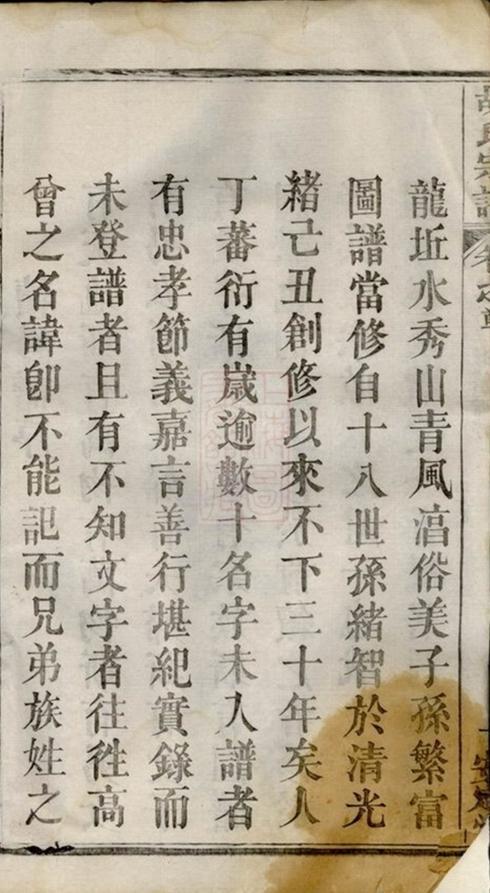 胡氏宗譜
龍坵水秀山青風湻俗美子孫繁富
圖譜當修自十八世孫緒智於清光
緒己丑創修以來不下三十年矣人
丁蕃衍有歲逾數十名字未入譜者
有忠孝節義嘉言善行堪紀實錄而
未登譜者且有不知文字者往徃高
曾之名諱卽不能記而兄弟族姓之